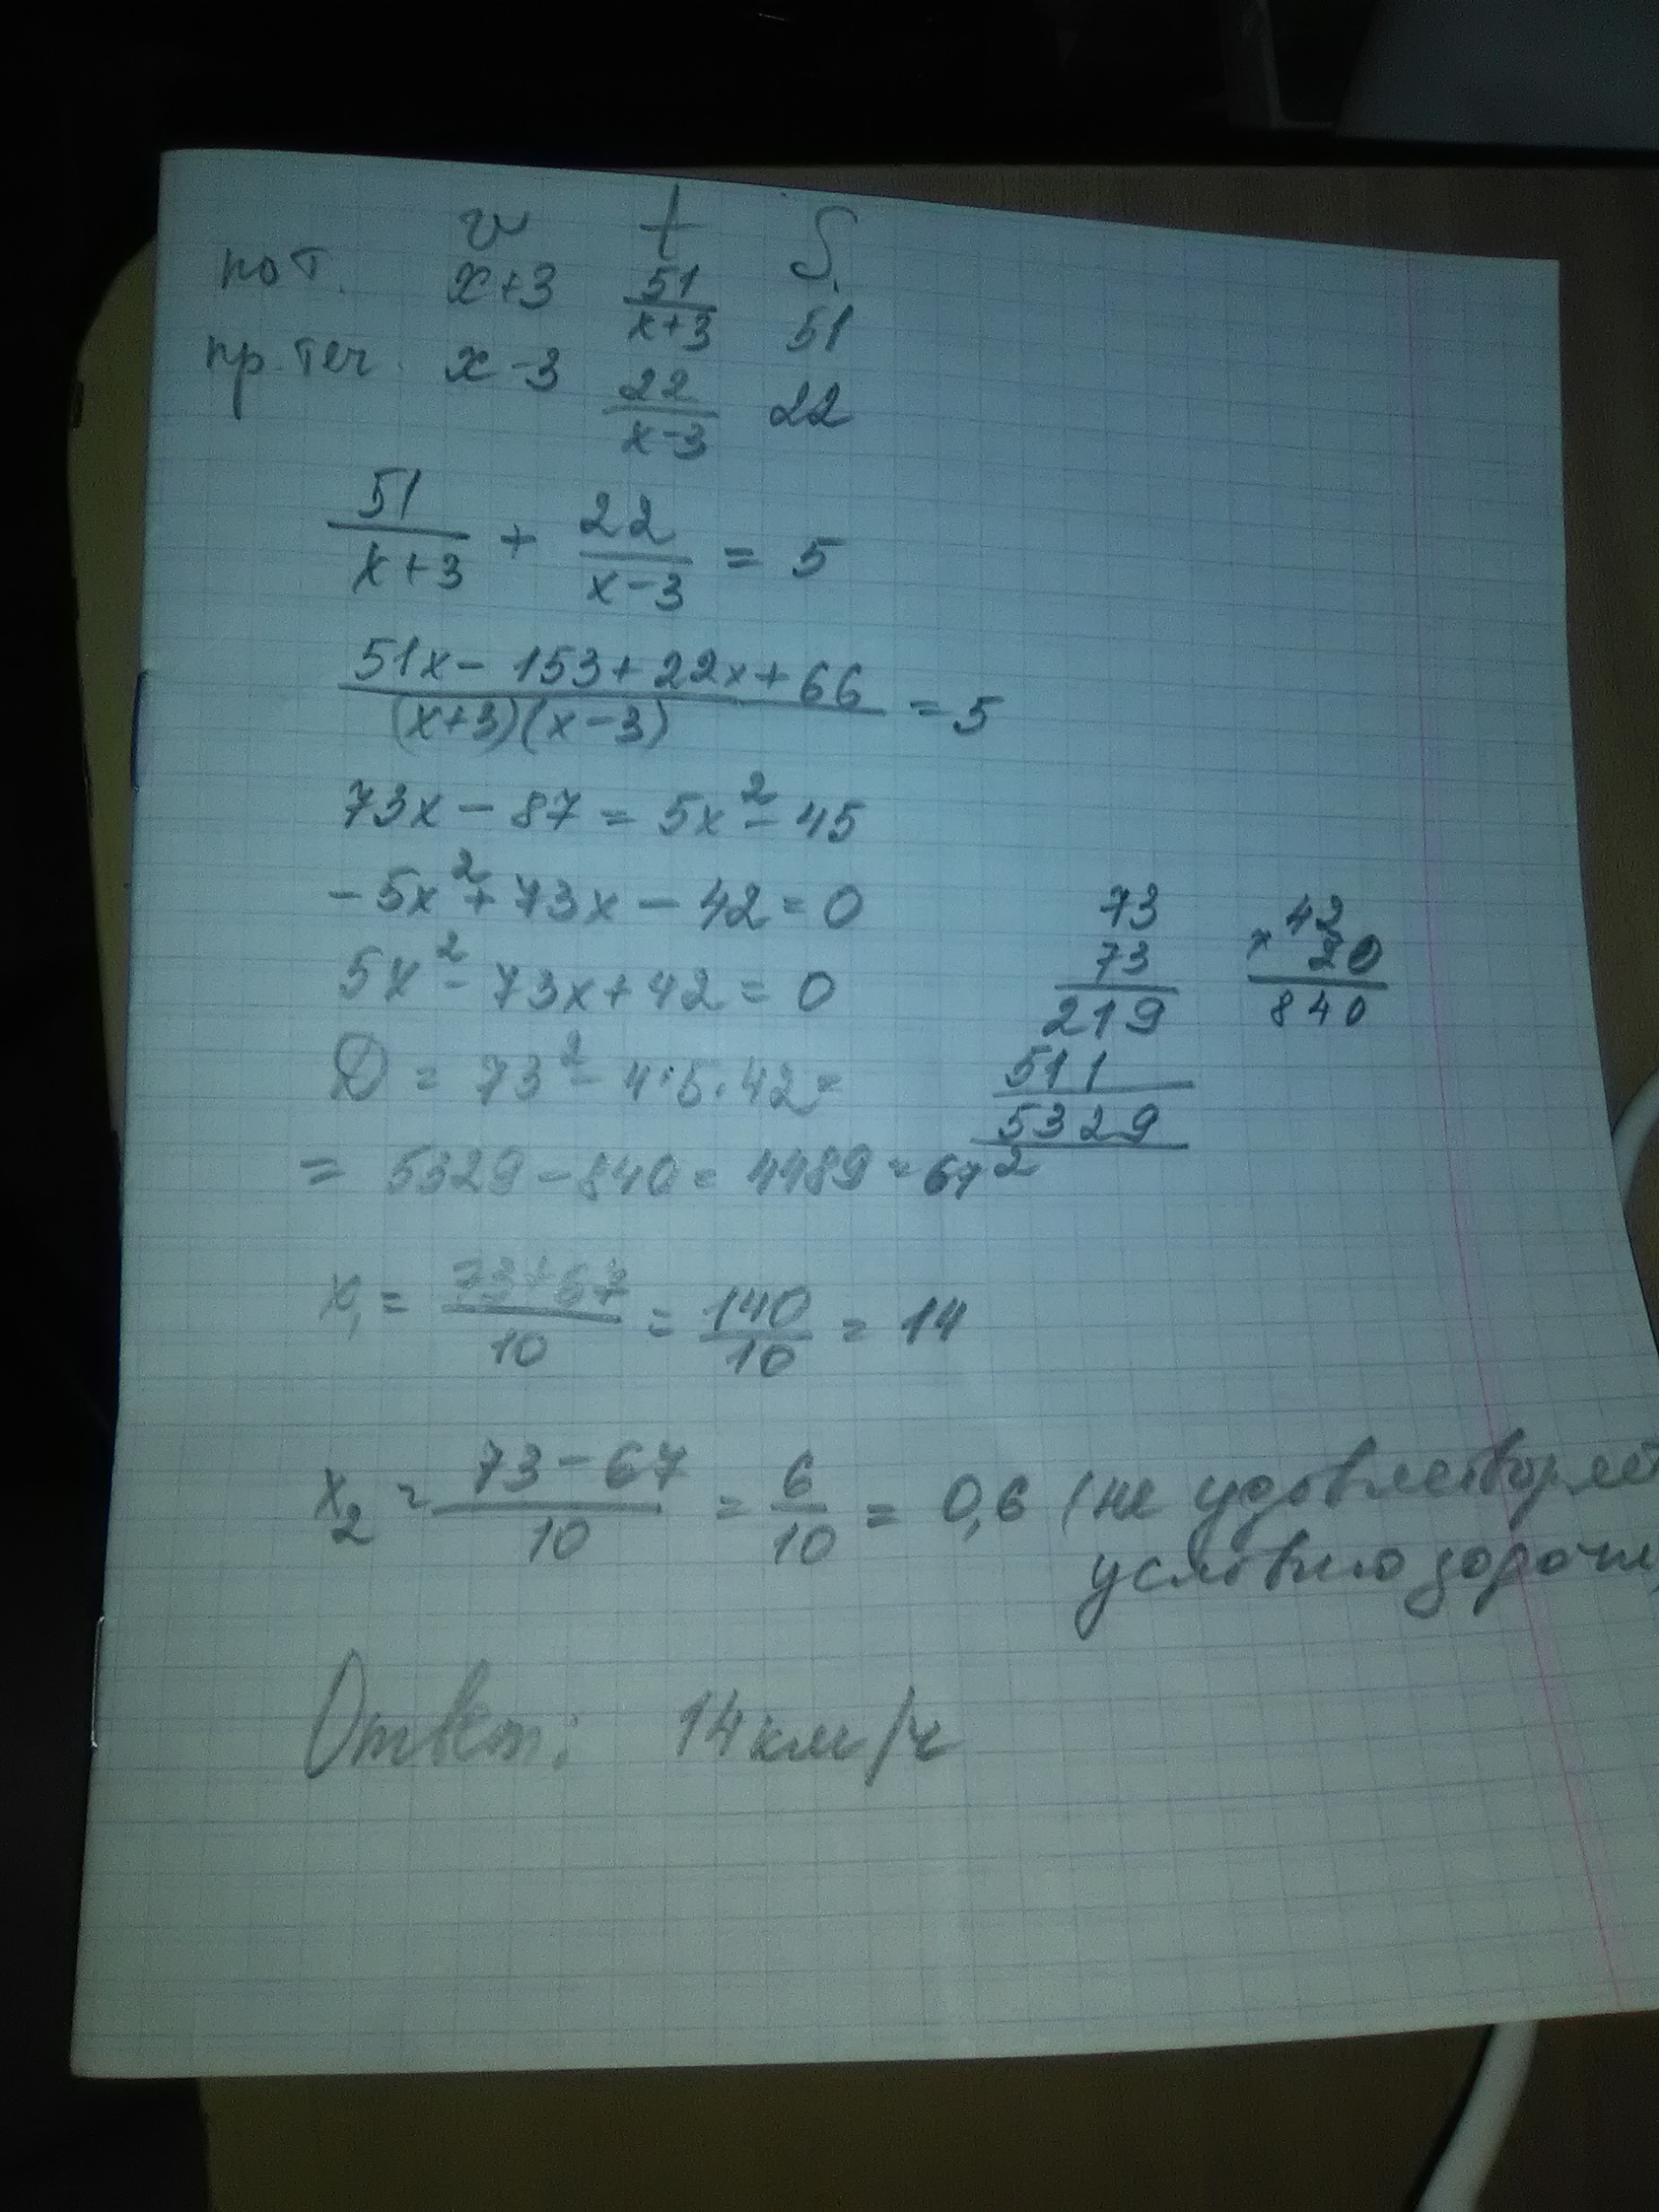 v t S
пот. x+3 51/(x+3) 51
пр. теч. x-3 22/(x-3) 22
51/(x+3) + 22/(x-3) = 5
(51x - 153 + 22x + 66)/((x+3)(x-3)) = 5
73x - 87 = 5x² - 45
-5x² + 73x - 42 = 0
5x² - 73x + 42 = 0
D = 73² - 4·5·42 =
= 5329 - 840 = 4489 = 67²
73
73
219
511
5329
× 42
20
840
x₁ = (73+67)/10 = 140/10 = 14
x₂ = (73-67)/10 = 6/10 = 0,6 (не удовлетворяет
условию задачи)
Ответ: 14 км/ч